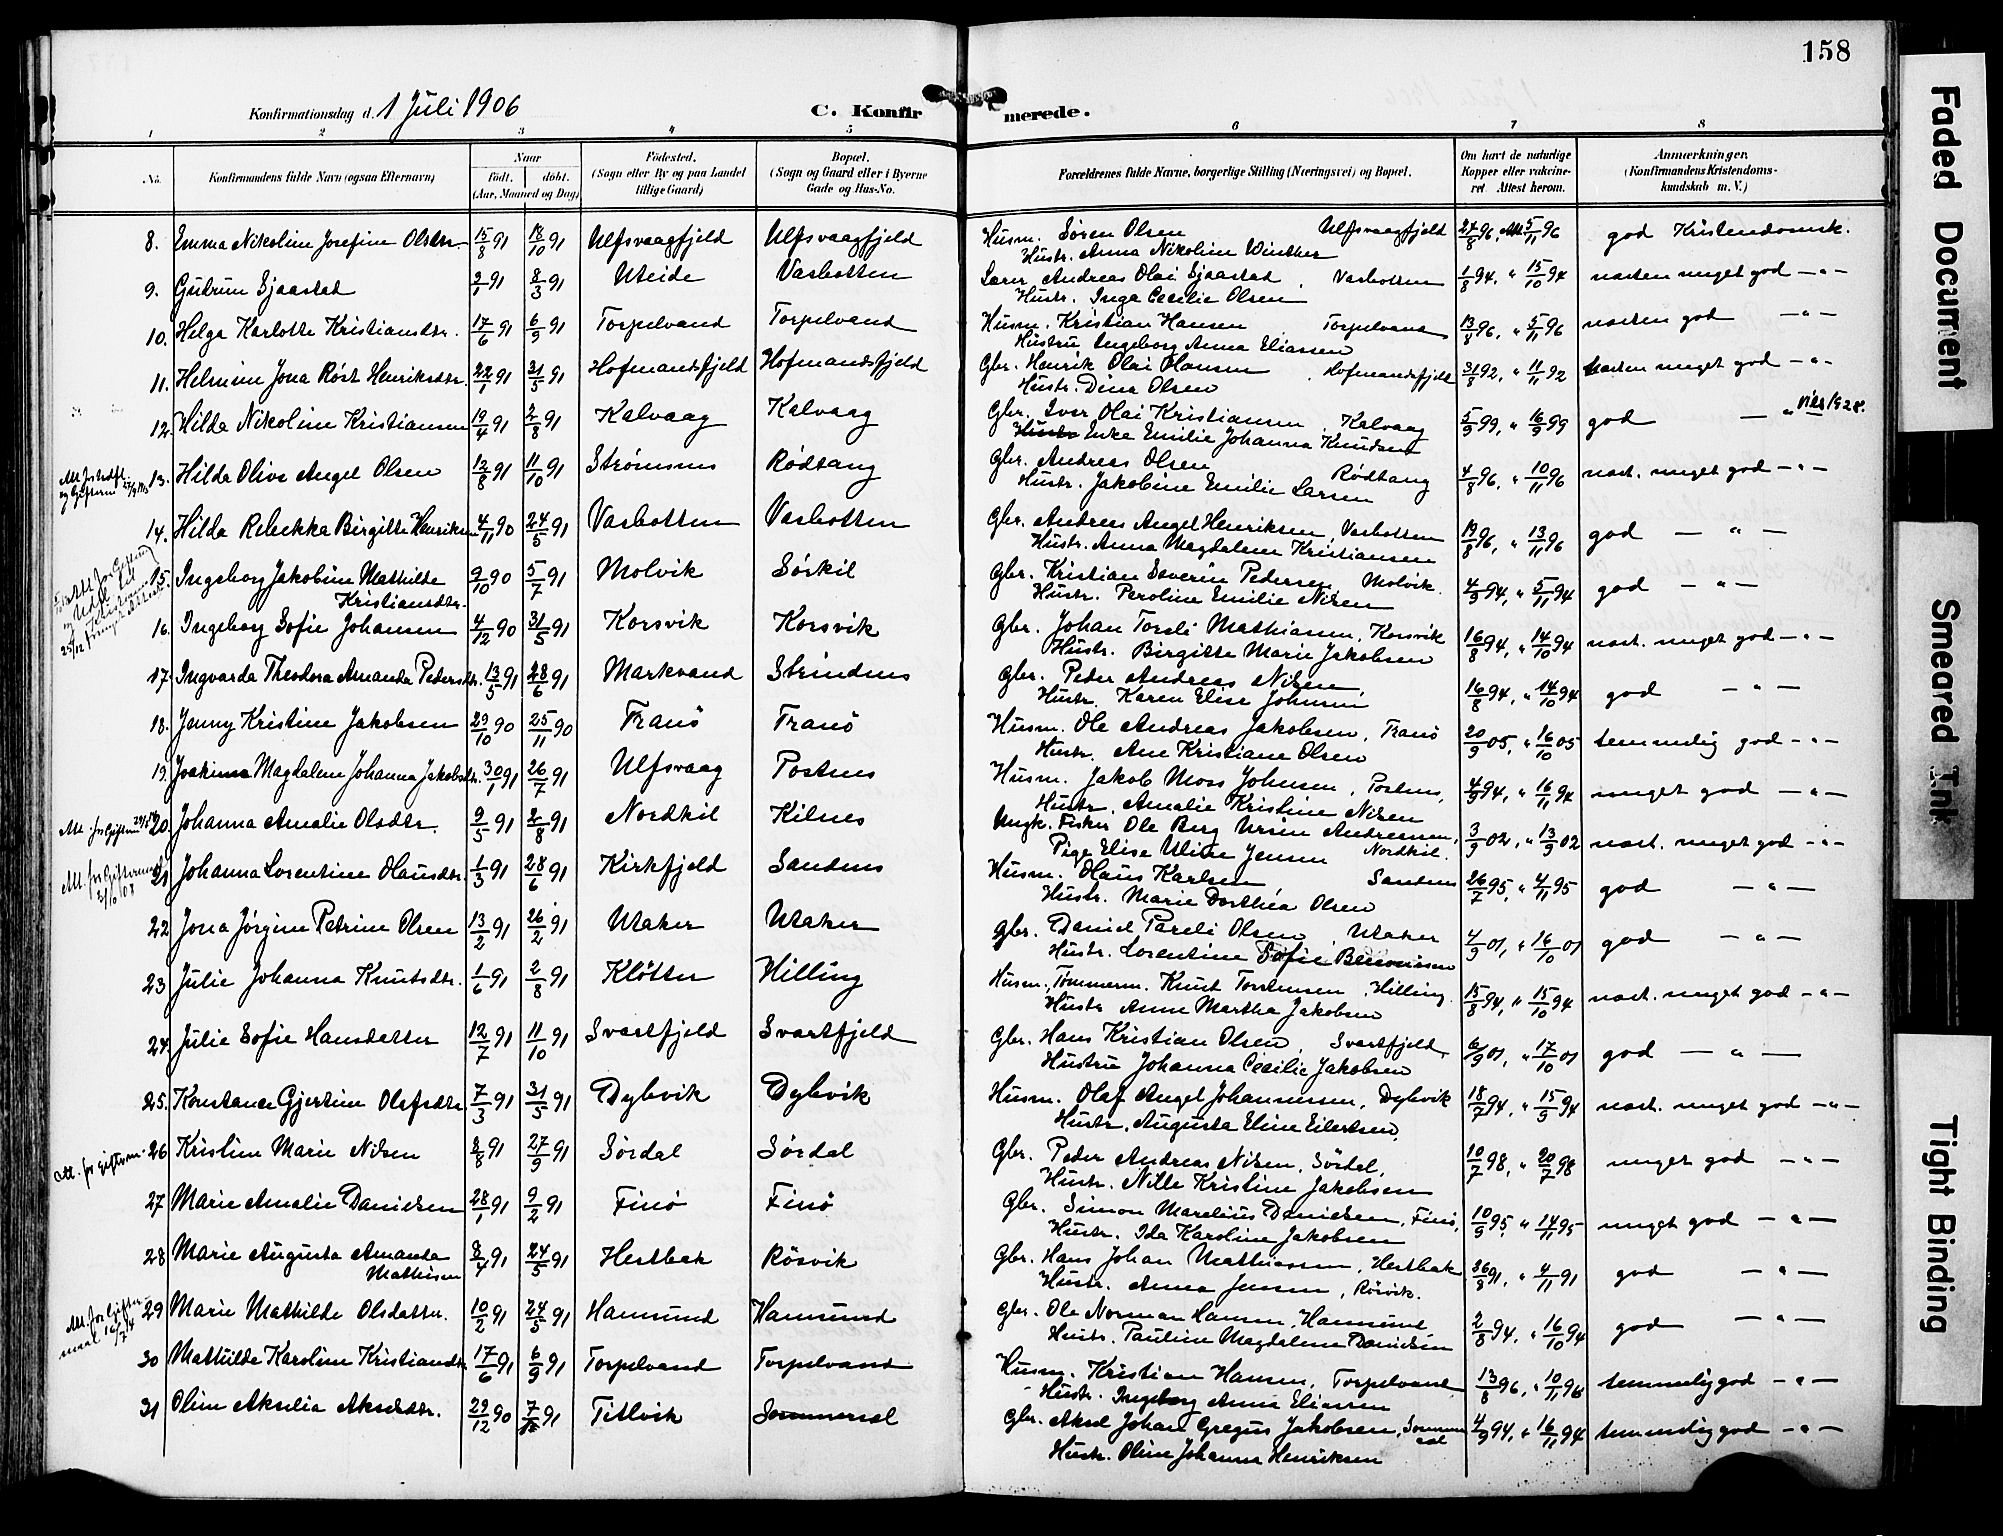 158
Konfirmationsdag d. 1 Juli 1906
C. Konfirmerede.
1 2 3 4 5 6 7 8
No. Konfirmandens fulde Navn (ogsaa Efternavn) Naar født. døbt. (Aar, Maaned og Dag) Fødested. (Sogn eller By og paa Landet tillige Gaard) Bopæl. (Sogn og Gaard eller i Byerne Gade og Hus-No. Forældrenes fulde Navne, borgerlige Stilling (Næringsvei) og Bopæl. Om havt de naturlige Kopper eller vakcineret Attest herom. Anmærkninger. (Konfirmandens Kristendomskundskab m. V.)
8. Emma Nikoline Josefine Olsdtr. 15/8 91 18/10 91 Ulfsvaagfjeld Ulfsvaagfjeld Husm. Søren Olsen Ulfsvaagfjeld 27/8 96, Att. 5/11 96 god Kristendomsk.
Hustr. Anna Nikoline Winther
9. Gudrun Sjaastad 2/1 91 8/3 91 Uteide Vasbotten Lærer Andreas Olai Sjaastad, Vasbotten 1/8 94, " 15/10 94 næsten meget god — " —
Hustr. Inga Cecilie Olsen
10. Helga Karlotte Kristiansdtr. 17/6 91 6/9 91 Torpelvand Torpelvand Husm. Kristian Hansen Torpelvand 13/8 96, " 5/11 96 næsten god — " —
Hustru Ingeborg Anna Eliassen
11. Helmine Jona Røst Henriksdtr. 22/1 91 31/5 91 Hofmandsfjeld Hofmandsfjeld Gbr. Henrik Olai Hansen, Hofmandsfjeld 31/8 92, " 11/11 92 næsten meget god — " —
Hustr. Dina Olsen
12. Hilda Nikoline Kristiansen 19/4 91 2/8 91 Kalvaag Kalvaag Gbr. Iver Olai Kristiansen, Kalvaag 5/9 99, " 16/9 99 god — " 1928.
Enke Emilie Johanna Knudsen
13. Hilda Oliva Angel Olsen 12/8 91 11/10 91 Strømsnes Rødtang Gbr. Andreas Olsen Rødtang 4/8 96, " 10/11 96 næst. meget god — " —
Hustr. Jakobine Emilie Larsen
14. Hilda Rebekka Birgitte Henriksen 4/11 90 24/5 91 Vasbotten Vasbotten Gbr. Andreas Angel Henriksen, Vasbotten 19/8 96, " 13/11 96 god — " —
Hustr. Anna Magdalena Kristiansen
15. Ingeborg Jakobine Mathilde 9/10 90 5/7 91 Molvik Sørkil Gbr. Kristian Severin Pedersen Molvik. 4/9 94, " 5/11 94 god — " —
Kristiansdtr. Hustr. Peroline Emilie Nilsen
16. Ingeborg Sofie Johansen 4/12 90 31/5 91 Korsvik Korsvik Gbr. Johan Toreli Mathiassen, Korsvik 16/8 94, " 14/10 94 næst. meget god — " —
Hustr. Birgitte Marie Jakobsen
17. Ingvarda Theodora Amanda Pedersdtr. 13/5 91 28/6 91 Markvand Strindnes Gbr. Peder Andreas Nilsen, 16/8 94, " 14/10 94 god — " —
Hustr. Karen Elise Johnsen
18. Jenny Kristine Jakobsen 29/10 90 25/11 90 Tranø Tranø Husm. Ole Andreas Jakobsen, Tranø 20/9 05, " 16/10 05 temmelig god — " —
Hustr. Ane Kristiane Olsen
19. Joakima Magdalena Johanna Jakobsdtr. 30/1 91 26/7 91 Ulfsvaag Postnes Husm. Jakob Moss Johnsen, Postnes, 4/9 94, " 16/11 94 meget god — " —
Hustr. Amalie Kristine Nilsen
Att. for Giftermaal 20 Johanna Amalie Olsdtr. 9/5 91 2/8 91 Nordkil Kilnes Ungk. Fisker Ole Berg Ursin Andreassen, 3/9 02, " 13/9 02 næst. meget god — " —
Pige Elise Uline Jensen Nordkil.
Att. for Giftermaal 21/6 08 21 Johanna Lorentine Olausdtr. 1/3 91 28/6 91 Kirkfjeld Sandnes Husm. Olaus Karlsen Sandnes 26/7 95, " 4/11 95 god — " —
Hustr. Marie Dorthea Olsen
22 Jona Jørgine Petrine Olsen 13/2 91 26/2 91 Utaker Utaker Gbr. Daniel Pareli Olsen, Utaker 4/9 01, " 16/10 01 god — " —
Hustr. Lorentine Sofie
23 Julie Johanna Knutsdtr. 1/6 91 2/8 91 Kløtter Hilling Husm., Tømmerm. Knut Torstensen, Hilling. 15/8 94, " 15/10 94 næst. meget god — " —
Hustr. Anne Martha Jakobsen
24. Julie Sofie Hansdatter 12/7 91 11/10 91 Svartfjeld Svartfjeld Gbr. Hans Kristian Olsen, Svartfjeld, 6/9 01, " 17/10 01 god — " —
Hustru Johanna Cecilie Jakobsen
25. Konstance Gjertine Olafsdtr. 7/3 91 31/5 91 Dybvik Dybvik Husm. Olaf Angel Johannessen, Dybvik 18/7 94, " 15/9 94 næst. meget god — " —
Hustr. Augusta Eline Eilertsen.
Att. for Gifterm. 26 Kristine Marie Nilsen 8/8 91 27/9 91 Sørdal Sørdal Gbr. Peder Andreas Nilsen, Sørdal, 10/7 98, " 20/7 98 meget god — " —
Hustr. Nille Kristine Jakobsen
27 Marie Amalie Danielsen 28/1 91 9/2 91 Finø Finø Gbr. Simon Marelius Danielsen, Finø, 10/9 95, " 14/11 95 meget god — " —
Hustr. Ida Karoline Jakobsen
28 Marie Augusta Amanda 8/4 91 24/5 91 Hestbak Røsvik Gbr. Hans Johan Mathiassen, Hestbak 26/8 91, " 4/11 91 god — " —
Mathisen Hustr. Anna Jensen, Røsvik.
Att. for Giftermaal 16/7 14 29 Marie Mathilde Olsdatter. 10/2 91 24/5 91 Hamsund Hamsund Gbr. Ole Norman Hansen, Hamsund 2/8 94, " 16/10 94 god — " —
Hustr. Pauline Magdalena Danielsen
30 Mathilde Karoline Kristiansdtr. 17/6 91 6/9 91 Torpelvand Torpelvand Husm. Kristian Hansen, Torpelvand 13/8 96, " 10/11 96 temmelig god — " —
Hustr. Ingeborg Anna Eliassen
31 Oline Akselia Akseldtr. 29/12 90 91 Titlvik Sommersæl Gbr. Aksel Johan Gregus Jakobsen, Sommersæl 4/9 94, " 16/11 94 temmelig god — " —
Hustr. Oline Johanna Henriksen
Faded Document
Smeared Ink
Tight Binding